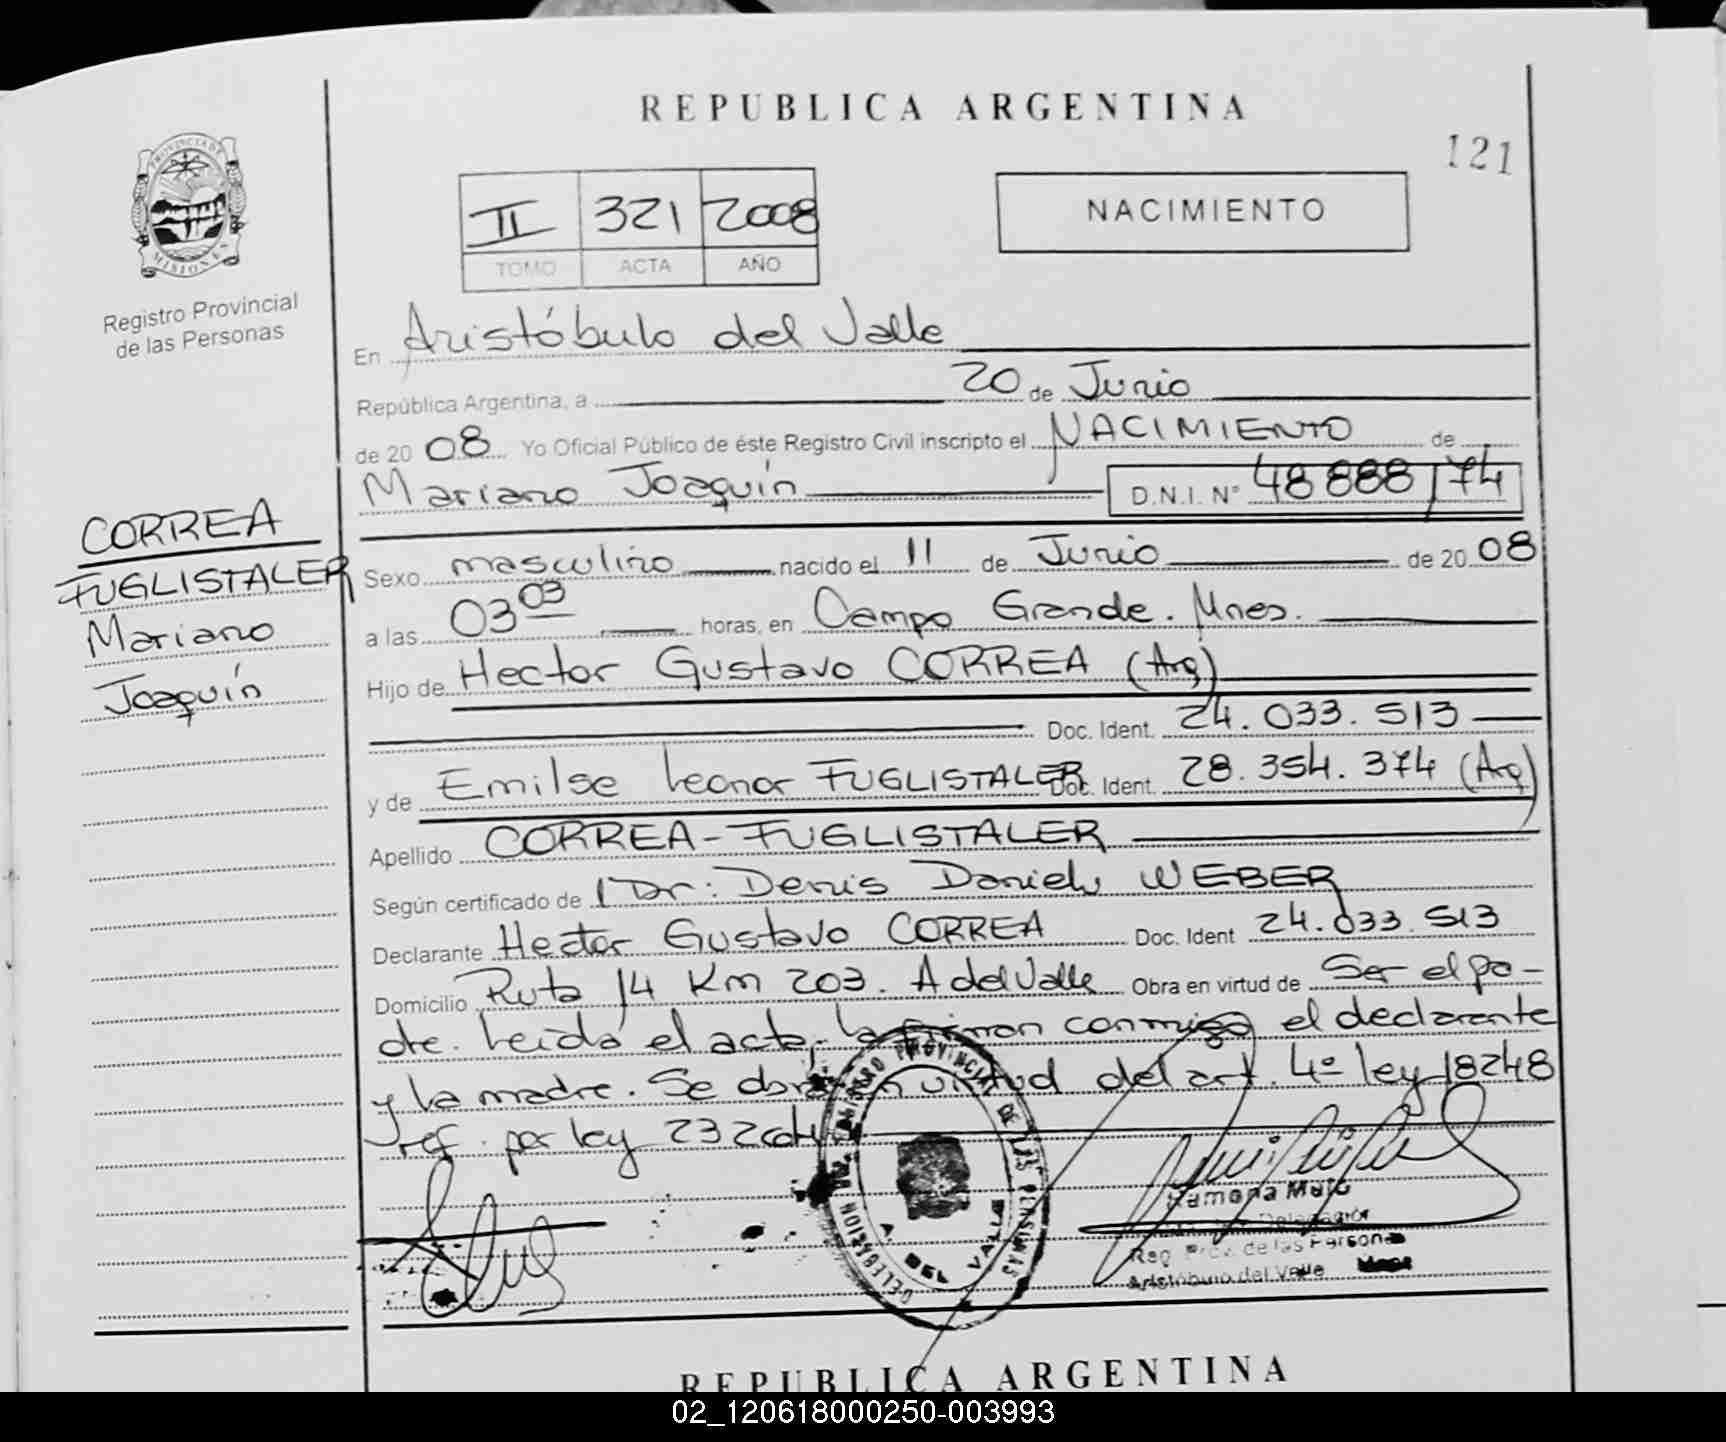 REPUBLICA ARGENTINA
121
PROVINCIA DE
MISIONES
Registro Provincial
de las Personas
II 321 2008
TOMO ACTA AÑO
NACIMIENTO
En Aristóbulo del Valle
República Argentina, a 20 de Junio
de 20 08 Yo Oficial Público de éste Registro Civil inscripto el NACIMIENTO de
Mariano Joaquín D.N.I. Nº 48888174
CORREA
FUGLISTALER
Mariano
Joaquín
Sexo masculino nacido el 11 de Junio de 20 08
a las 03 03 horas, en Campo Grande. Mnes.
Hijo de Hector Gustavo CORREA (Arg)
Doc. Ident. 24.033.513
y de Emilse Leonor FUGLISTALER Doc. Ident. 28.354.374 (Arg)
Apellido CORREA-FUGLISTALER
Según certificado de Dr: Denis Daniel WEBER
Declarante Hector Gustavo CORREA Doc. Ident 24.033.513
Domicilio Ruta 14 Km 203. A del Valle Obra en virtud de Ser el pa-
dre. Leída el acta, la firman conmigo el declarante
y la madre. Se obra en virtud del art. 4º ley 18248
ref. por ley
REGISTRO PROVINCIAL DE LAS PERSONAS
DELEGACION
A. DEL VALLE
Ramona
Delegación
Reg. Prov. de las Personas
Aristóbulo del Valle Mnes
REPUBLICA ARGENTINA
02_120618000250-003993